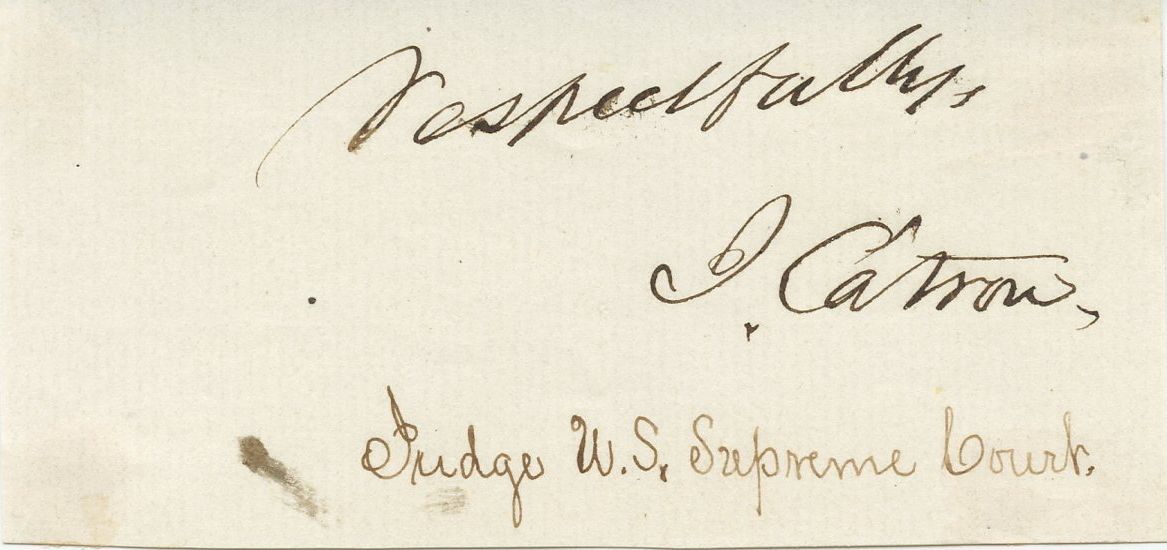 Respectfully,
J. Catron,
Judge U.S. Supreme Court.